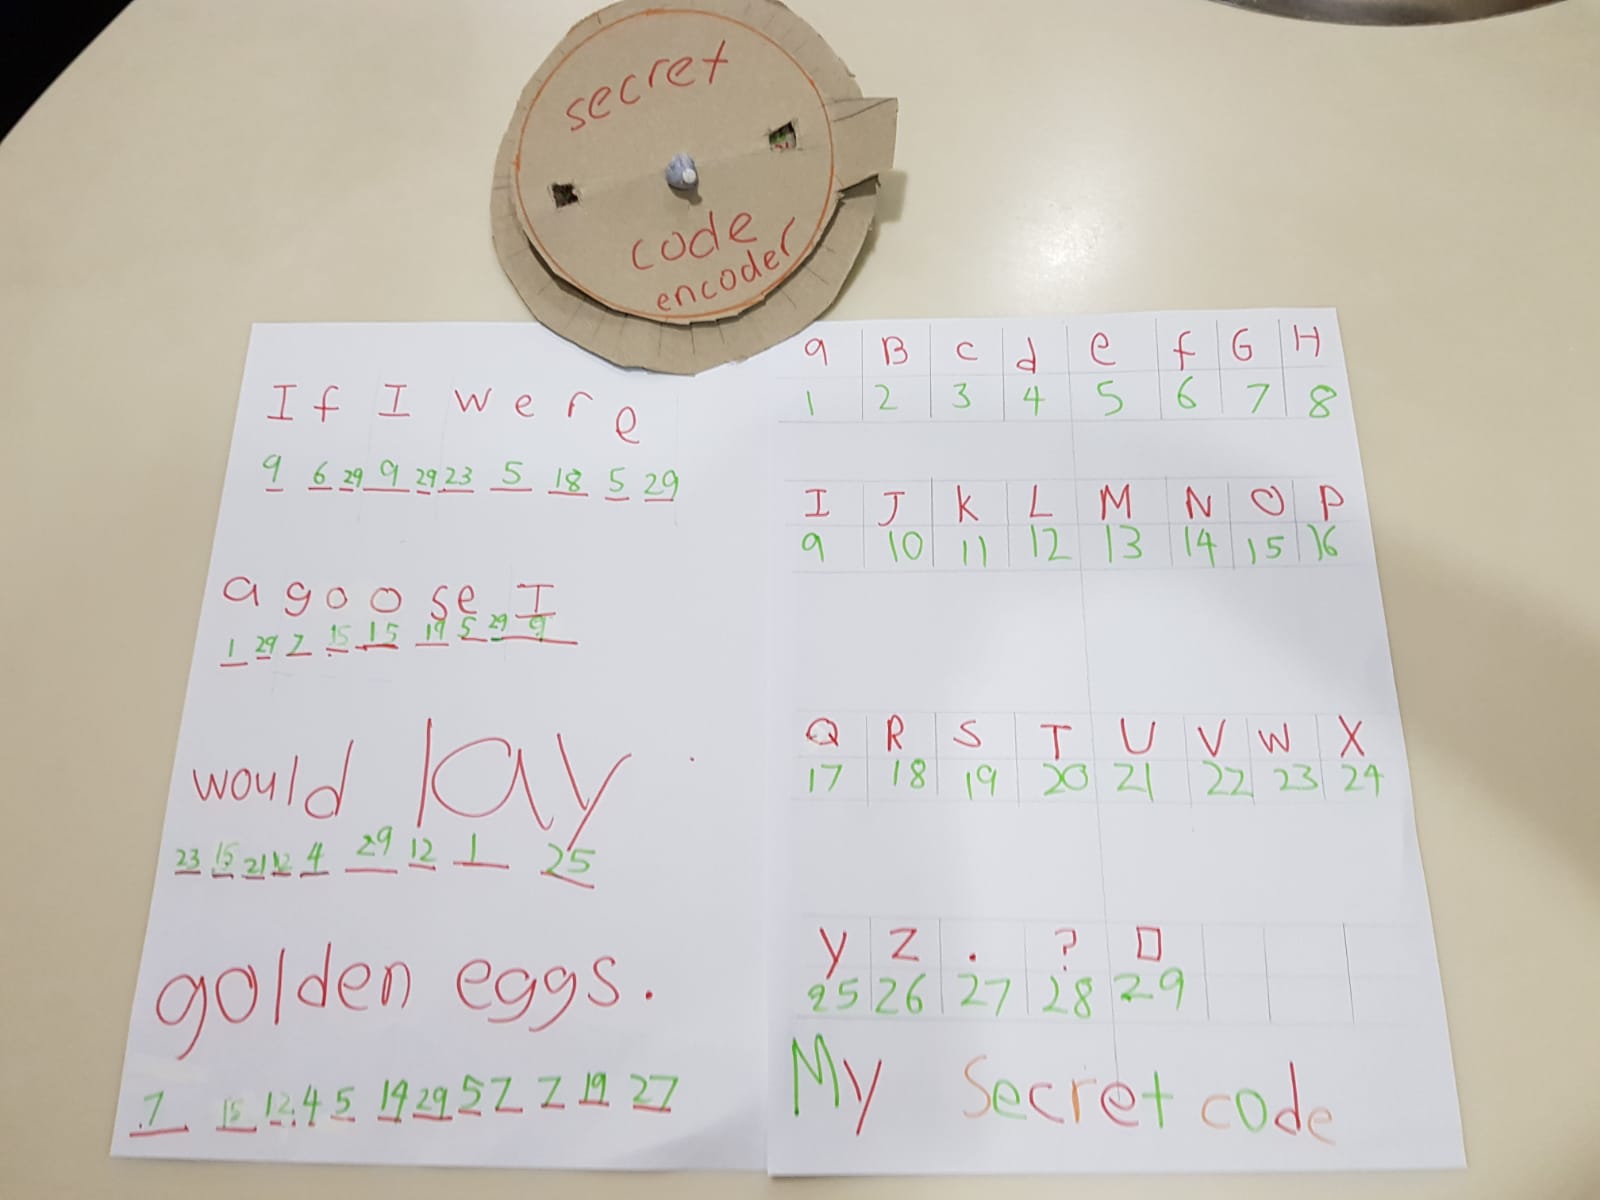 secret
code
encoder
If I were
9 6 29 9 29 23 5 18 5 29
a goose I
1 29 7 15 15 19 5 29 9
would lay
23 15 21 12 4 29 12 1 25
golden eggs.
7 15 12 4 5 14 29 5 7 7 19 27
a B c d e f G H
1 2 3 4 5 6 7 8
I J K L M N O P
9 10 11 12 13 14 15 16
Q R S T U V W X
17 18 19 20 21 22 23 24
y Z . ? □
25 26 27 28 29
My Secret code